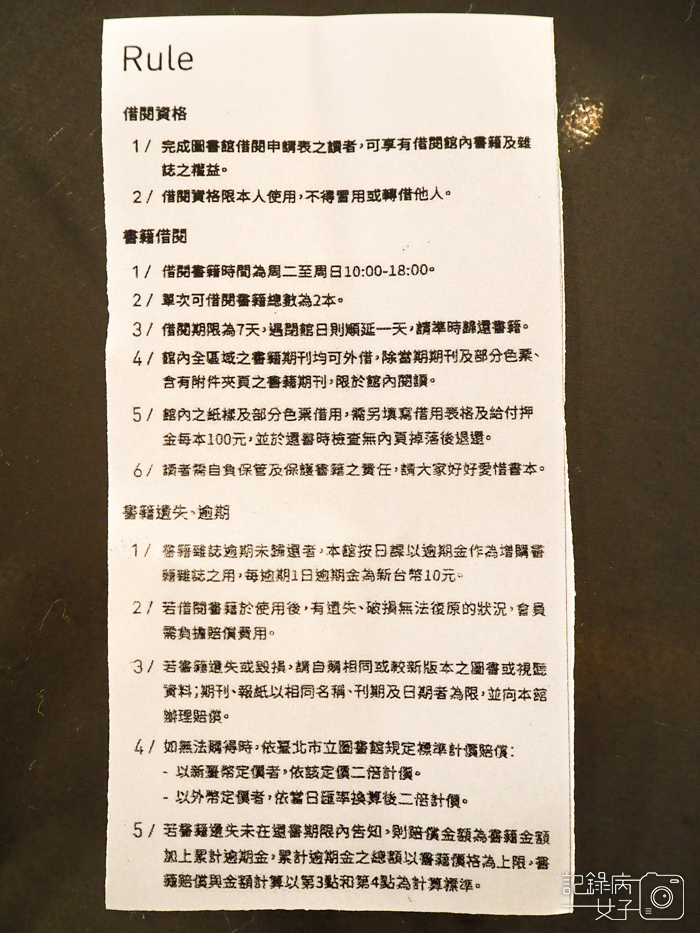 Rule
借閱資格
1/ 完成圖書館借閱申請表之讀者,可享有借閱館內書籍及雜
誌之權益。
2/ 借閱資格限本人使用,不得冒用或轉借他人。
書籍借閱
1/ 借閱書籍時間為周二至周日10:00-18:00。
2/ 單次可借閱書籍總數為2本。
3/ 借閱期限為7天,遇閉館日則順延一天,請準時歸還書籍。
4/ 館內全區域之書籍期刊均可外借,除當期期刊及部分色票、
含有附件夾頁之書籍期刊,限於館內閱讀。
5/ 館內之紙樣及部分色票借用,需另填寫借用表格及給付押
金每本100元,並於還書時檢查無內頁掉落後退還。
6/ 讀者需自負保管及保護書籍之責任,請大家好好愛惜書本。
書籍遺失、逾期
1/ 書籍雜誌逾期未歸還者,本館按日課以逾期金作為增購書
籍雜誌之用,每逾期1日逾期金為新台幣10元。
2/ 若借閱書籍於使用後,有遺失、破損無法復原的狀況,會員
需負擔賠償費用。
3/ 若書籍遺失或毀損,請自購相同或較新版本之圖書或視聽
資料;期刊、報紙以相同名稱、刊期及日期者為限,並向本館
辦理賠償。
4/ 如無法購得時,依臺北市立圖書館規定標準計價賠償:
- 以新臺幣定價者,依該定價二倍計價。
- 以外幣定價者,依當日匯率換算後二倍計價。
5/ 若書籍遺失未在還書期限內告知,則賠償金額為書籍金額
加上累計逾期金,累計逾期金之總額以書籍價格為上限,書
籍賠償與金額計算以第3點和第4點為計算標準。
記錄病
女子